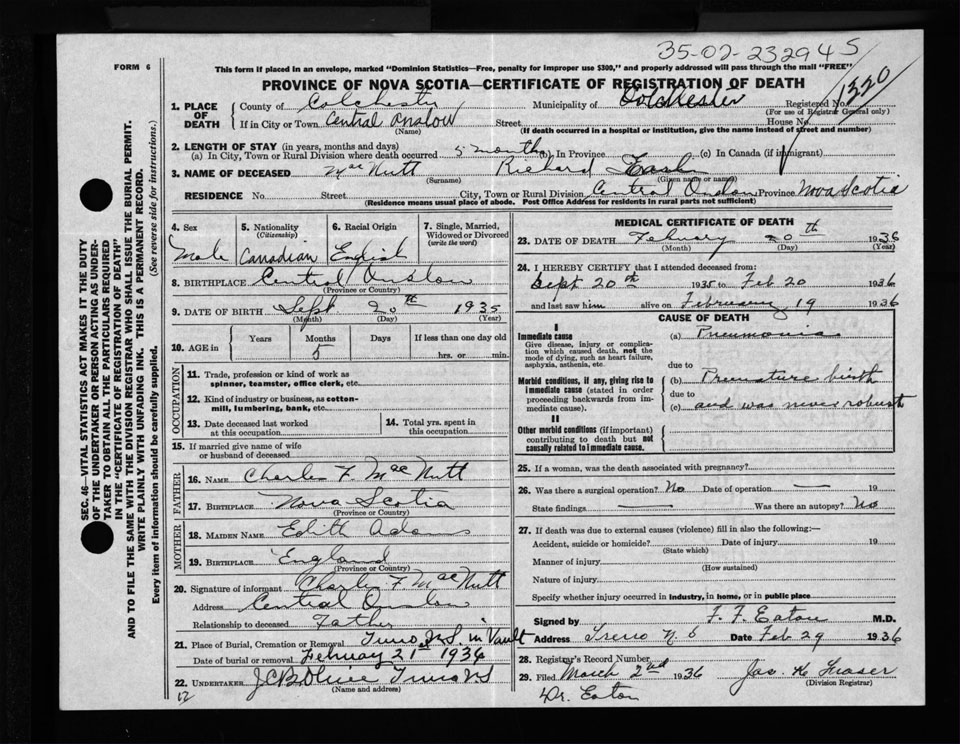 35-02-232945
FORM 6
This form if placed in an envelope, marked "Dominion Statistics—Free, penalty for improper use $300," and properly addressed will pass through the mail "FREE"
PROVINCE OF NOVA SCOTIA—CERTIFICATE OF REGISTRATION OF DEATH
1320
1. PLACE OF DEATH
County of Colchester Municipality of Colchester Registered No.
(For use of Registrar General only)
If in City or Town Central Onslow Street House No.
(Name) (If death occurred in a hospital or institution, give the name instead of street and number)
2. LENGTH OF STAY (in years, months and days)
(a) In City, Town or Rural Division where death occurred 5 months (b) In Province (c) In Canada (if immigrant)
3. NAME OF DECEASED MacNutt Richard Earl
(Surname) (Given name or names)
RESIDENCE No. Street City, Town or Rural Division Central Onslow Province Nova Scotia
(Residence means usual place of abode. Post Office Address for residents in rural parts not sufficient)
4. Sex 5. Nationality (Citizenship) 6. Racial Origin 7. Single, Married, Widowed or Divorced (write the word)
Male Canadian English
8. BIRTHPLACE Central Onslow
(Province or Country)
9. DATE OF BIRTH Sept 20th 1935
(Month) (Day) (Year)
10. AGE in Years Months Days If less than one day old
5 hrs. or min.
OCCUPATION
11. Trade, profession or kind of work as spinner, teamster, office clerk, etc.
12. Kind of industry or business, as cotton-mill, lumbering, bank, etc.
13. Date deceased last worked at this occupation
14. Total yrs. spent in this occupation
15. If married give name of wife or husband of deceased
FATHER
16. NAME Charles F. MacNutt
17. BIRTHPLACE Nova Scotia
(Province or Country)
MOTHER
18. MAIDEN NAME Edith Adams
19. BIRTHPLACE England
(Province or Country)
20. Signature of informant Charles F. MacNutt
Address Central Onslow
Relationship to deceased Father
21. Place of Burial, Cremation or Removal Truro N.S. in Vault
Date of burial or removal February 21st 1936
22. UNDERTAKER Truro NS
(Name and address)
12
MEDICAL CERTIFICATE OF DEATH
23. DATE OF DEATH February 20th 1936
(Month) (Day) (Year)
24. I HEREBY CERTIFY that I attended deceased from:
Sept 20th 1935 to Feb 20 1936
and last saw him alive on February 19 1936
CAUSE OF DEATH
I
Immediate cause
Give disease, injury or complication which caused death, not the mode of dying, such as heart failure, asphyxia, asthenia, etc.
(a) Pneumonia
due to
Morbid conditions, if any, giving rise to immediate cause (stated in order proceeding backwards from immediate cause).
(b) Premature birth
due to
(c) and was never robust
II
Other morbid conditions (if important) contributing to death but not causally related to immediate cause.
25. If a woman, was the death associated with pregnancy?
26. Was there a surgical operation? No Date of operation — 19
State findings — Was there an autopsy? No
27. If death was due to external causes (violence) fill in also the following:—
Accident, suicide or homicide? Date of injury 19
(State which)
Manner of injury
(How sustained)
Nature of injury
Specify whether injury occurred in industry, in home, or in public place
Signed by F. F. Eaton M.D.
Address Truro N.S Date Feb 29 1936
28. Registrar's Record Number
29. Filed March 2nd 1936 Jas H Fraser
(Division Registrar)
Dr. Eaton
SEC. 46—VITAL STATISTICS ACT MAKES IT THE DUTY
OF THE UNDERTAKER OR PERSON ACTING AS UNDER-
TAKER TO OBTAIN ALL THE PARTICULARS REQUIRED
IN THE "CERTIFICATE OF REGISTRATION OF DEATH"
AND TO FILE THE SAME WITH THE DIVISION REGISTRAR WHO SHALL ISSUE THE BURIAL PERMIT.
WRITE PLAINLY WITH UNFADING INK. THIS IS A PERMANENT RECORD.
Every item of information should be carefully supplied. (See reverse side for instructions.)